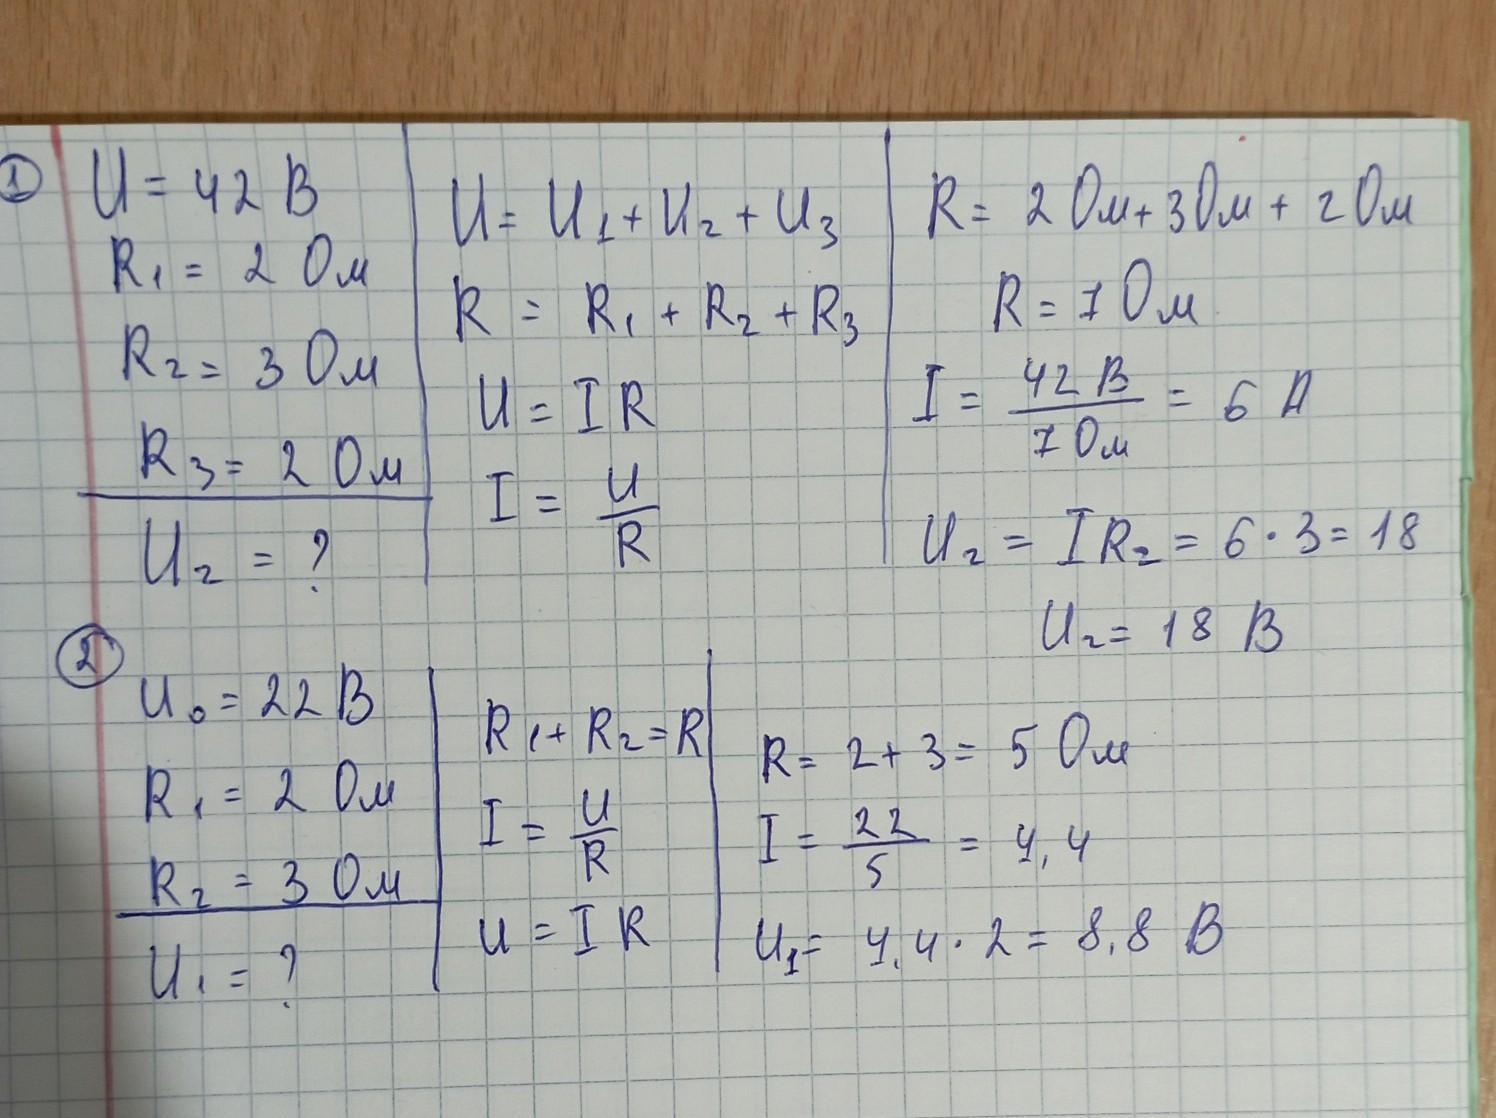 1
U = 42 В
R₁ = 2 Ом
R₂ = 3 Ом
R₃ = 2 Ом
U₂ = ?
U = U₁ + U₂ + U₃
R = R₁ + R₂ + R₃
U = I R
I = U/R
R = 2 Ом + 3 Ом + 2 Ом
R = 7 Ом
I = 42 В / 7 Ом = 6 А
U₂ = I R₂ = 6 · 3 = 18
U₂ = 18 В
2
U₀ = 22 В
R₁ = 2 Ом
R₂ = 3 Ом
U₁ = ?
R₁ + R₂ = R
I = U/R
U = I R
R = 2 + 3 = 5 Ом
I = 22/5 = 4,4
U₁ = 4,4 · 2 = 8,8 В